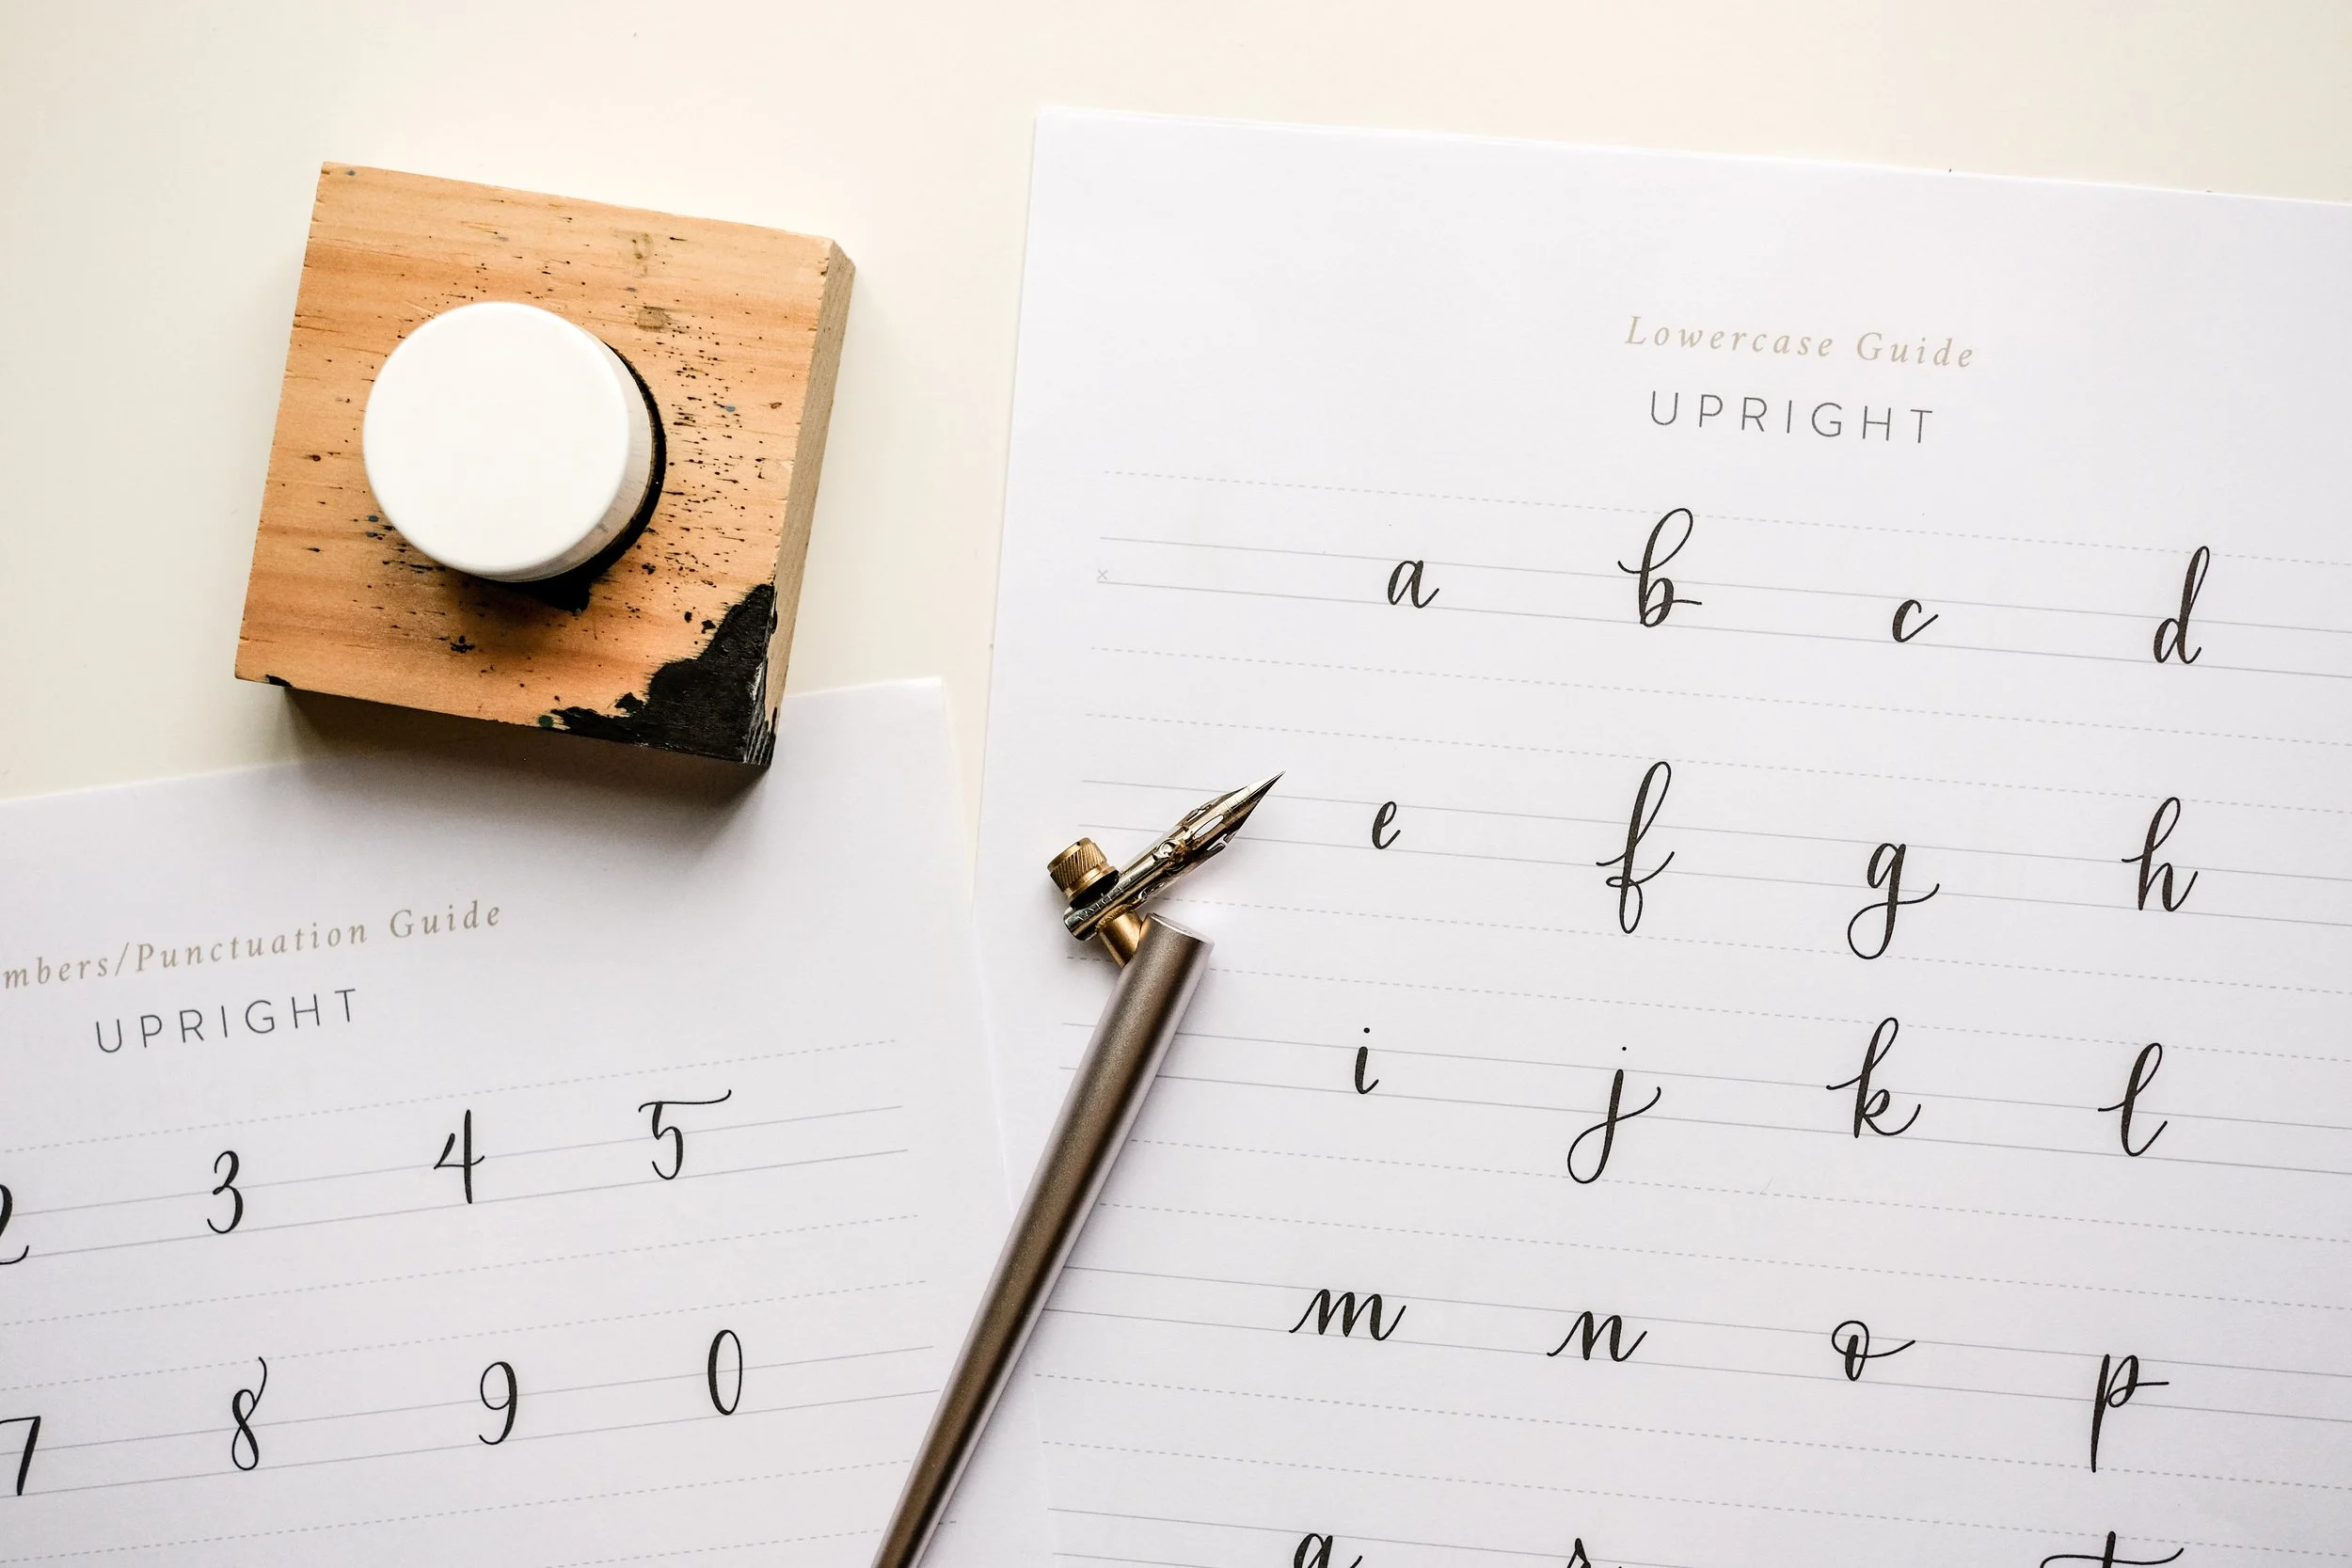 Lowercase Guide
UPRIGHT
a b c d
e f g h
i j k l
m n o p
Punctuation Guide
UPRIGHT
2 3 4 5
7 8 9 0